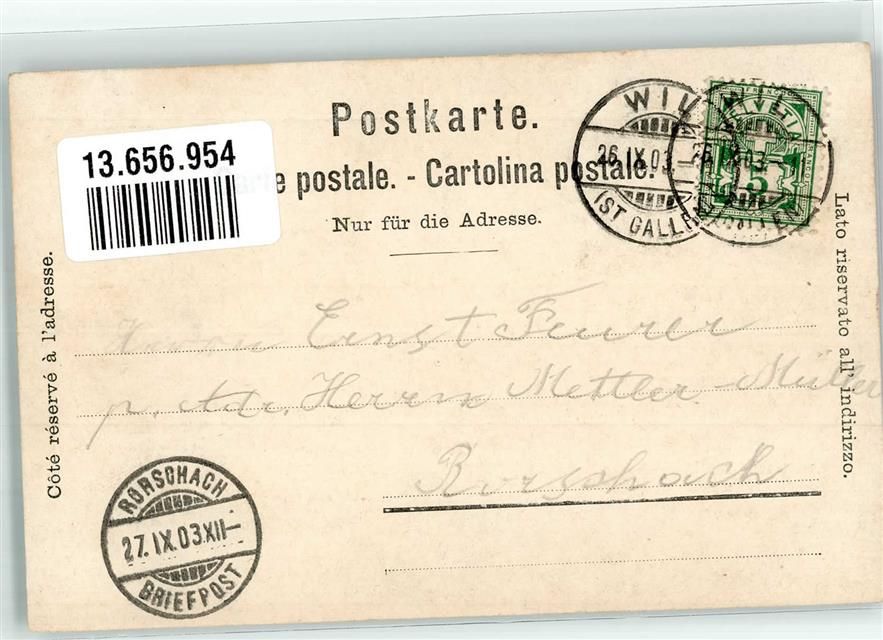 13.656.954
Postkarte.
e postale. - Cartolina postale.
Nur für die Adresse.
WIL
26.IX.03.
(ST GALLEN)
WIL
26.IX.03
HELVETIA
5
Côté réservé à l'adresse.
Lato riservato all' indirizzo.
Herrn Ernst Feurer
p. Adr. Herrn Mettler-Müller
Rorschach
RORSCHACH
27.IX.03.XII
BRIEFPOST